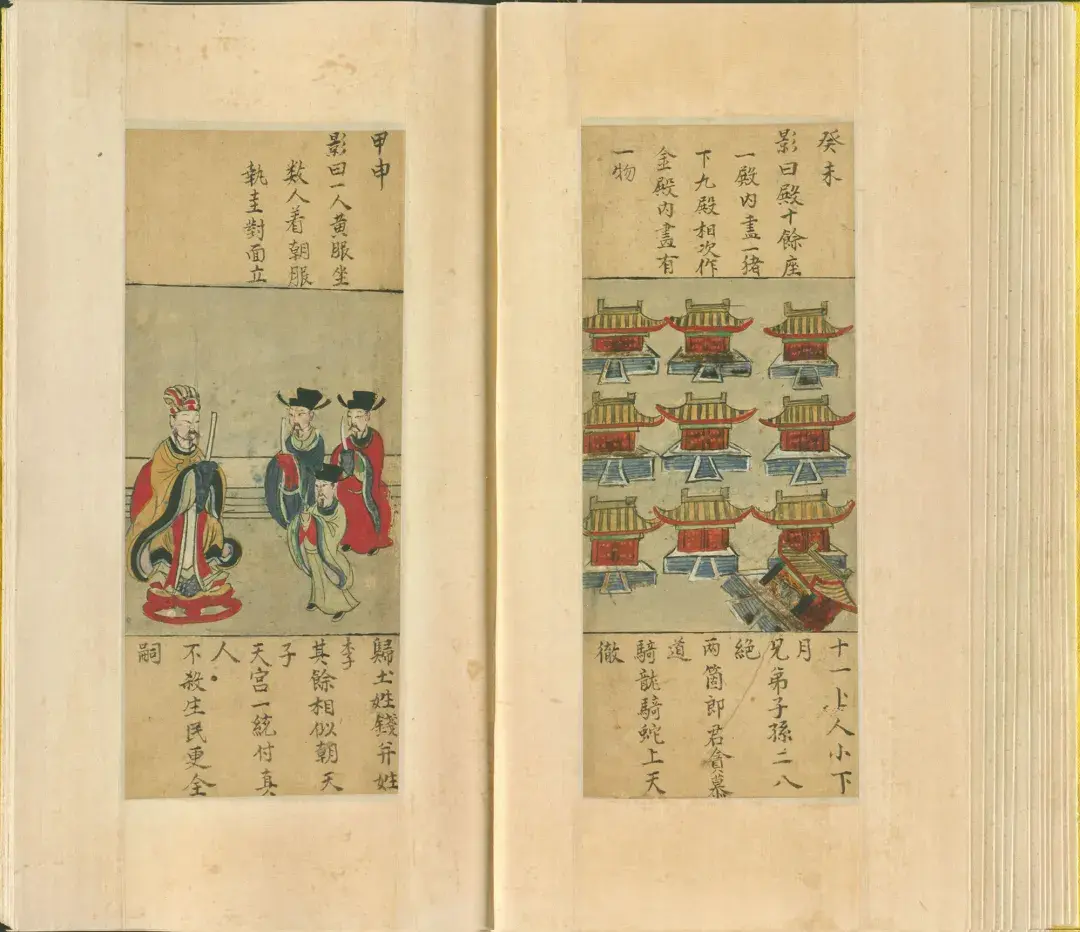 癸未
影曰殿十餘座
一殿内盡一猪
下九殿相次作
金殿内盡有
一物
十一上人小下
月
兄弟子孫二八
絶
两箇郎君貪慕
道
騎龍騎蛇上天
徹
甲申
影曰一人黄服坐
数人着朝服
執圭對面立
歸土姓錢并姓
李
其餘相似朝天
子
天宫一統付真
人
不殺生民更全
嗣